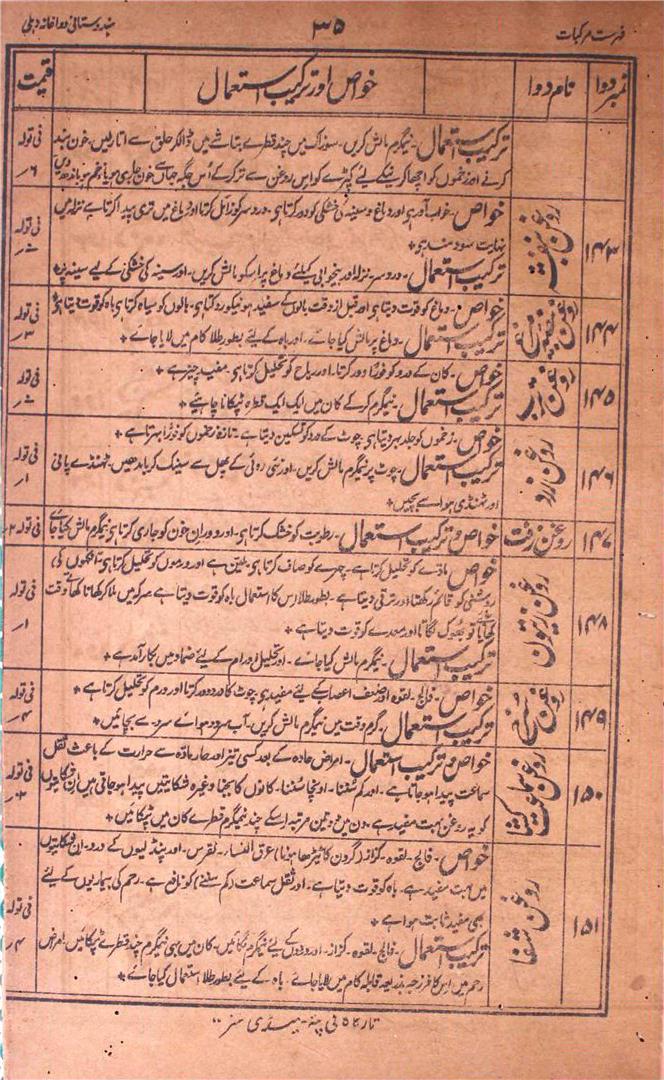 فہرست مرکبات ۳۵ ہندوستانی دواخانہ دہلی
نمبر دوا نام دوا خواص اور ترکیب استعمال قیمت
ترکیب استعمال - نیمگرم مالش کریں - سوزاک میں چند قطرے بتاشے میں ڈالکر حلق سے اتارلیں - خون بند فی تولہ
کرنے اور زخموں کو اچھا کرنیکے لیے کپڑے کو اس روغن سے تر کرکے اُس جگہ جہاں سے خون جاری ہو یا زخم ہو باندھیں ۶ر
۱۴۳ روغن بنفشہ خواص - خواب آور ہی اور دماغ و سینہ کی خشکی کو دور کرتا ہی - درد سر کو زائل کرتا اور دماغ میں تری پیدا کرتا ہے نزلہ میں فی تولہ
نہایت سودمند ہی +
ترکیب استعمال - درد سر نزلہ اور بیخوابی کیلئے دماغ پر اسکو مالش کریں - اور سینہ کی خشکی کے لیے سینہ پر +
۱۴۴ روغن خواص - دماغ کو قوت دیتا ہی اور قبل از وقت بالوں کے سفید ہونیکو روکتا ہی - بالوں کو سیاہ کرتا ہی باہ کو قوت دیتا ہی فی تولہ
ترکیب استعمال - دماغ پر مالش کیا جائے - اور باہ کے لیئے بطور طلا کام میں لایا جائے + ۳ر
۱۴۵ روغن خواص - کان کے درد کو فوراً دور کرتا - اور ریاح کو تحلیل کرتا ہی - مفید چیز ہے + فی تولہ
ترکیب استعمال - نیمگرم کرکے کان میں ایک ایک قطرہ ٹپکانا چاہئیے +
۱۴۶ روغن زرد خواص - زخموں کو جلد بھر دیتا ہی - چوٹ کے درد کو تسکین دیتا ہے - تازہ زخموں کو فوراً بھرتا ہے + فی تولہ
ترکیب استعمال - چوٹ پر نیمگرم مالش کریں - اور نئی روئی کے پہل سے سینک کر باندھیں - ٹھنڈے پانی ۱ر
اور ٹھنڈی ہوا سے بچیں +
۱۴۷ روغن زفت خواص و ترکیب استعمال - رطوبت کو خشک کرتا ہی - اور دوران خون کو جاری کرتا ہی نیمگرم مالش کیا جائے فی تولہ ۲ر
۱۴۸ روغن زیتون خواص مادّے کو تحلیل کرتا ہے - چہرے کو صاف کرتا ہی - ملین ہے اور ورموں کو تحلیل کرتا ہی - آنکھوں کی فی تولہ
روشنی کو قائم رکھتا اور ترقی دیتا ہے - بطور طلا اس کا استعمال باہ کو قوت دیتا ہے سرکہ میں ملا کر کھانا کھاتے وقت ۱ر
کھایا جائے تو بھوک لگاتا اور معدے کو قوت دیتا ہے +
ترکیب استعمال - نیمگرم مالش کیا جائے - اور تحلیل اورام کے لیئے ضماد میں بکار آمد ہے +
۱۴۹ روغن سرخ خواص - فالج - لقوہ اور ضعف اعصاب کے لیئے مفید ہی چوٹ کا درد دور کرتا اور ورم کو تحلیل کرتا ہے + فی تولہ
ترکیب استعمال - گرم وقت میں نیمگرم مالش کریں - آب سرد و ہوائے سرد سے بچائیں + ۴ر
۱۵۰ روغن سماعت کشا خواص و ترکیب استعمال - امراض حادہ کے بعد کسی تیز اور حار مادّہ سے حرارت کے باعث ثقل فی تولہ
سماعت پیدا ہو جاتا ہے - اور کم سُننا - اونچا سُننا - کانوں کا بجنا وغیرہ شکایتیں پیدا ہو جاتی ہیں اِن شکایتوں
کو یہ روغن بہت مفید ہے - دن میں دو تین مرتبہ اسکے چند نیمگرم قطرے کان میں ٹپکائیں +
۱۵۱ روغن شفا خواص - فالج - لقوہ - کزاز (گردن کا ٹیڑھا ہونا) عرق النساء - نقرس - اور پنڈلیوں کے درد - ان شکایتوں فی تولہ
میں بہت مفید ہے - باہ کو قوت دیتا ہے - اور ثقل سماعت (کم سننے) کو نافع ہے - رحم کی بیماریوں کے لیئے ۴ر
بھی مفید ثابت ہوا ہے +
ترکیب استعمال - فالج - لقوہ - کزاز - اور دردوں کے لیئے نیمگرم لگائیں - کان میں بھی نیمگرم چند قطرے ٹپکائیں - امراض
رحم میں اس کا فرزجہ بذریعہ قابلہ کام میں لایا جائے - باہ کے لیئے بطور طلا استعمال کیا جائے +
تار کا کافی پتہ -